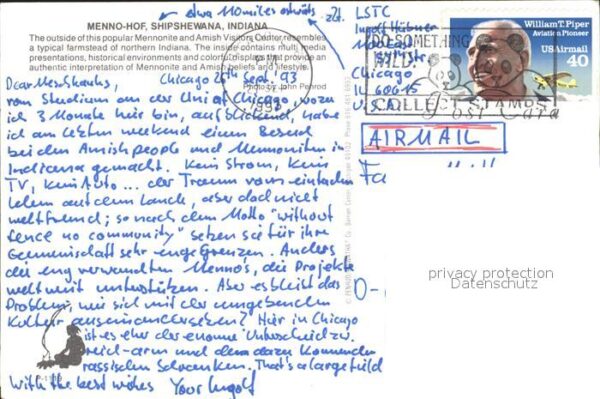 etwa 170 miles ostwärts
MENNO-HOF, SHIPSHEWANA, INDIANA
The outside of this popular Mennonite and Amish Visitors Center resembles
a typical farmstead of northern Indiana. The inside contains multi media
presentations, historical environments and colorful displays that provide an
authentic interpretation of Mennonite and Amish beliefs and lifestyle.
Photo by John Penrod
Chicago 26th Sept. '93
vom Studium an der Uni of Chicago, wozu
ich 3 Monate hier bin, aufblickend, habe
ich am letzten weekend einen Besuch
bei den Amish people und Mennoniten in
Indiana gemacht. Kein Strom, kein
TV, kein Auto ... der Traum vom einfachen
Leben auf dem Land, aber doch nicht
weltfremd; so nach dem Motto "without
fence no community" setzen sie für ihre
Gemeinschaft sehr enge Grenzen. Anders
die eng verwandten Menno's, die Projekte
weltweit unterstützen. Aber es bleibt das
Problem, wie sich mit der umgebenden
Kultur auseinandersetzen? Hier in Chicago
ist es eher der enorme Unterschied zw.
reich-arm und dem dazu kommenden
rassischen Schranken. That's a large field
With the best wishes Your Ingolf
z.Zt. LSTC
Ingolf Hübner
Chicago
IL 60615
U.S.A.
William T. Piper
Aviation Pioneer
USAirmail
40
DO SOMETHING
WILD:
COLLECT STAMPS
Post Card
AIRMAIL
D-
privacy protection
Datenschutz